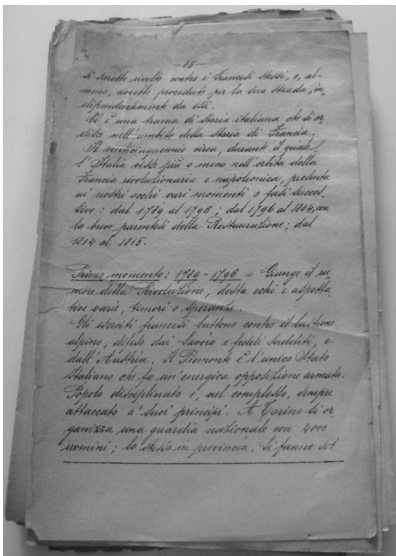 - 15 -
si sarebbe rivolto contro i Francesi stessi, o, al-
meno, avrebbe proceduto per la sua strada, in-
dipendentemente da essi.
Vi è una trama di Storia italiana che si or-
disce nell'ambito della Storia di Francia.
Il venticinquennio circa, durante il quale
l'Italia visse più o meno nell'orbita della
Francia rivoluzionaria e napoleonica, presenta
ai nostri occhi vari momenti o fasi succes-
sive: dal 1789 al 1796; dal 1796 al 1814, con
la breve parentesi della Restaurazione; dal
1814 al 1815.
Primo momento: 1789-1796 = Giunge il ru-
more della Rivoluzione, desta echi e aspetta-
tive varii, timori o speranze.
Gli eserciti francesi battono contro il bastione
alpino, difeso dai Savoia e fedeli sudditi, e
dall'Austria. Il Piemonte è l'unico Stato
Italiano che fa un'energica opposizione armata.
Popolo disciplinato e, nel complesso, sempre
attaccato a' suoi principi. A Torino si or-
ganizza una guardia nazionale con 4000
uomini; lo stesso in provincia. Si fanno